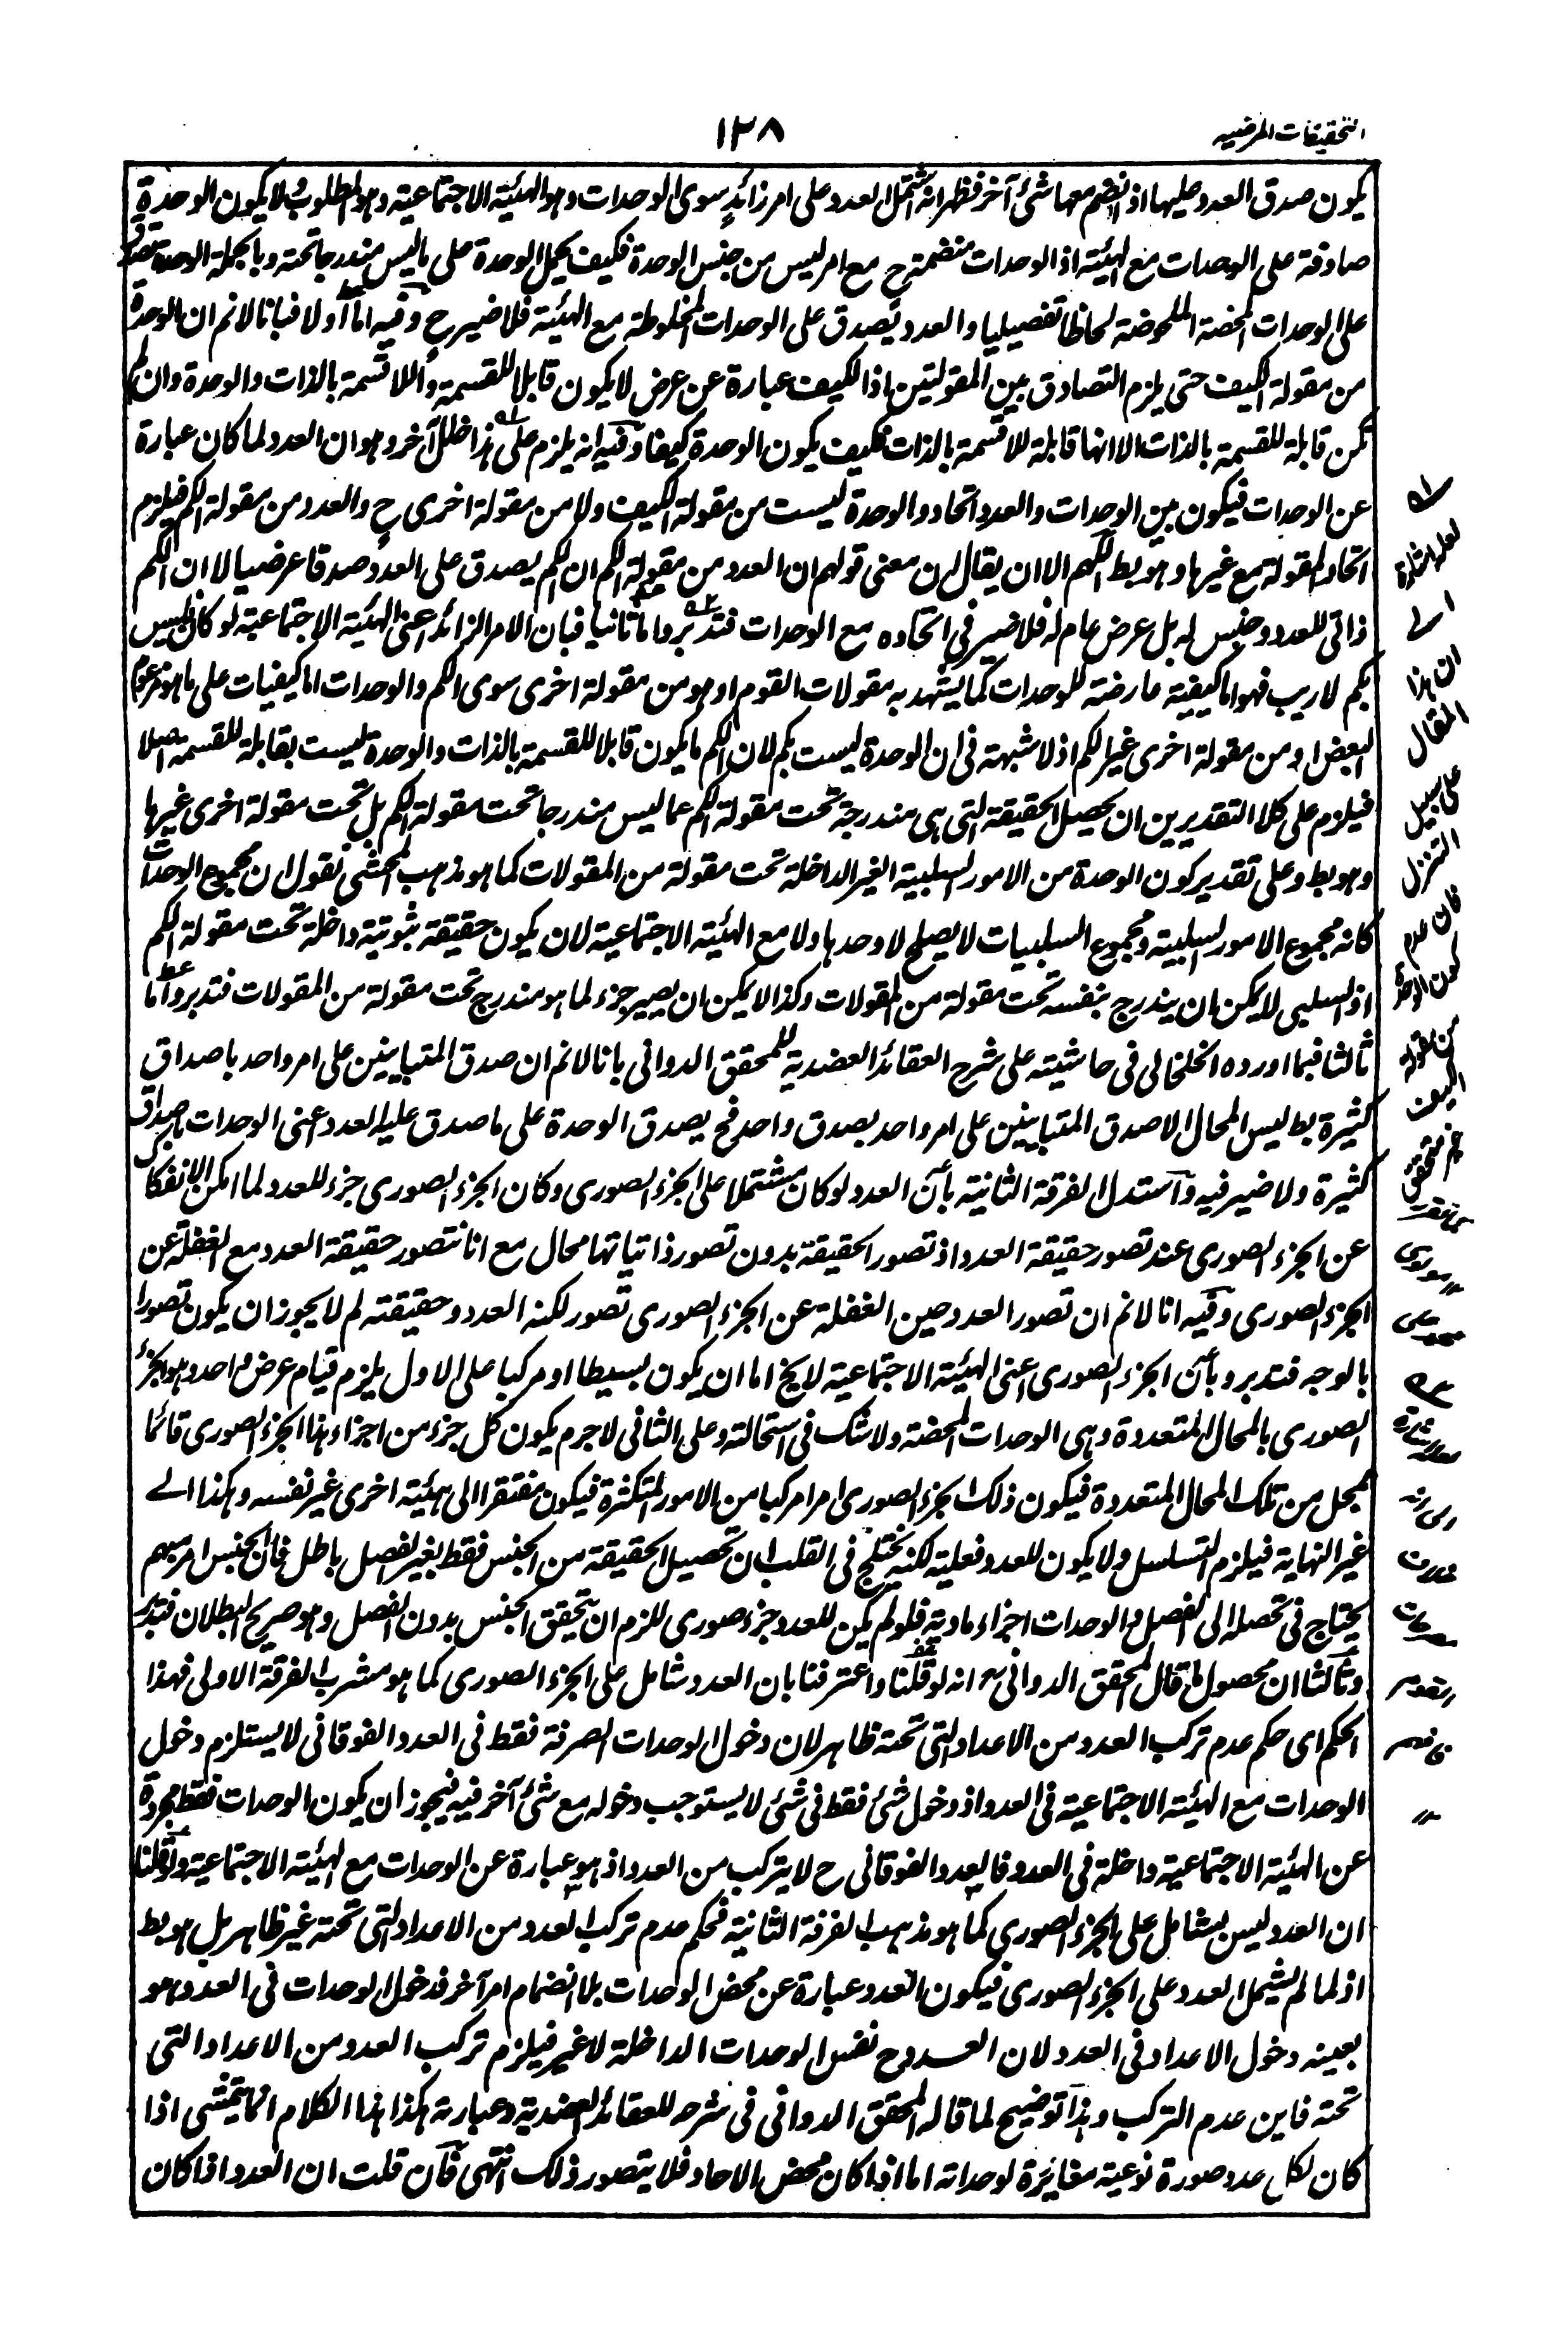 التحقيقات المرضيه
١٣٨
يكون صدق العدد عليها اذا انضم معها شئ آخر فظهر انه اشتمل العدد على امر زائد سوى الوحدات وهو الهيئة الاجتماعية وهو المطلوب ولا يكون الوحدة
صادقة على الوحدات مع الهيئة اذ الوحدات منضمة ح مع امر ليس من جنس الوحدة فكيف يحمل الوحدة على ما ليس مندرجا تحته وبالجملة الوحدة تصدق
على الوحدات المحضة الملحوظة لحاظا تفصيليا والعدد يصدق على الوحدات المخلوطة مع الهيئة فلا ضير ح وفيه اما اولا فبانا لا نم ان الوحدة
من مقولة الكيف حتى يلزم التصادق بين المقولتين اذ الكيف عبارة عن عرض لا يكون قابلا للقسمة واللاقسمة بالذات والوحدة وان لم
تكن قابلة للقسمة بالذات الا انها قابلة للاقسمة بالذات فكيف يكون الوحدة كيفا وفيه انه يلزم على هذا خلل آخر وهو ان العدد لما كان عبارة
عن الوحدات فيكون بين الوحدات والعدد اتحاد والوحدة ليست من مقولة الكيف ولا من مقولة اخرى ح والعدد من مقولة الكم فيلزم
اتحاد المقولة مع غيرها وهو بط اللهم الا ان يقال ان معنى قولهم ان العدد من مقولة الكم ان الكم يصدق على العدد صدقا عرضيا لا ان الكم
ذاتى للعدد وجنس له بل عرض عام له فلا ضير فى اتحاده مع الوحدات فتدبر واما ثانيا فبان الامر الزائد اعنى الهيئة الاجتماعية لو كان فليس
بكم لا ريب فهو اما كيفية عارضة للوحدات كما يشهد به مقولات القوم او هو من مقولة اخرى سوى الكم والوحدات اما كيفيات على ما هو مزعوم
البعض او من مقولة اخرى غير الكم اذ لا شبهة فى ان الوحدة ليست بكم لان الكم ما يكون قابلا للقسمة بالذات والوحدة ليست بقابلة للقسمة اصلا
فيلزم على كلا التقديرين ان يحصل الحقيقة التى هى مندرجة تحت مقولة الكم عما ليس مندرجا تحت مقولة الكم بل تحت مقولة اخرى غيرها
وهو بط وعلى تقدير كون الوحدة من الامور السلبية الغير الداخلة تحت مقولة من المقولات كما هو مذهب المحشى نقول ان مجموع الوحدات
كانه مجموع الامور السلبية ومجموع السلبيات لا يصلح لا وحدها ولا مع الهيئة الاجتماعية لان يكون حقيقة ثبوتية داخلة تحت مقولة الكم
اذ السلبى لا يمكن ان يندرج بنفسه تحت مقولة من المقولات وكذا لا يمكن ان يصير جزء لما هو مندرج تحت مقولة من المقولات فتدبر واما
ثالثا فبما اورده الخلخالى فى حاشيته على شرح العقائد العضدية للمحقق الدوانى بانا لا نم ان صدق المتباينين على امر واحد باصداق
كثيرة بط ليس المحال الا صدق المتباينين على امر واحد بصدق واحد فح يصدق الوحدة على ما صدق عليه العدد اعنى الوحدات باصداق
كثيرة ولا ضير فيه واستدل الفرقة الثانية بان العدد لو كان مشتملا على الجزء الصورى وكان الجزء الصورى جزء للعدد لما امكن الانفكاك
عن الجزء الصورى عند تصور حقيقة العدد اذ تصور الحقيقة بدون تصور ذاتياتها محال مع انا نتصور حقيقة العدد مع الغفلة عن
الجزء الصورى وفيه انا لا نم ان تصور العدد حين الغفلة عن الجزء الصورى تصور لكنه العدد وحقيقته لم لا يجوز ان يكون تصورا
بالوجه فتدبر وبان الجزء الصورى اعنى الهيئة الاجتماعية لا يخ اما ان يكون بسيطا او مركبا على الاول يلزم قيام عرض واحد وهو الجزء
الصورى بالمحال المتعددة وهى الوحدات المحضة ولا شك فى استحالته وعلى الثانى لا جرم يكون كل جزء من اجزاء هذا الجزء الصورى قائما
بمحل من تلك المحال المتعددة فيكون ذلك الجزء الصورى امرا مركبا من الامور المتكثرة فيكون مفتقرا الى هيئة اخرى غير نفسه وهكذا الے
غير النهاية فيلزم التسلسل ولا يكون للعدد فعلية لكنه يختلج فى القلب ان تحصيل الحقيقة من الجنس فقط بغير الفصل باطل فان الجنس امر مبهم
يحتاج فى تحصله الى الفصل والوحدات اجزاء مادية فلو لم يكن للعدد جزء صورى للزم ان يتحقق الجنس بدون الفصل وهو صريح البطلان فتدبر
وثالثا ان محصول ما قال المحقق الدوانى انه لو قلنا واعترفنا بان العدد شامل على الجزء الصورى كما هو مشرب الفرقة الاولى فهذا
الحكم اى حكم عدم تركب العدد من الاعداد التى تحته ظاهر لان دخول الوحدات الصرفة فقط فى العدد الفوقانى لا يستلزم دخول
الوحدات مع الهيئة الاجتماعية فى العدد اذ دخول شئ فقط فى شئ لا يستوجب دخوله مع شئ آخر فيه فيجوز ان يكون الوحدات فقط مجردة
عن الهيئة الاجتماعية داخلة فى العدد فالعدد الفوقانى ح لا يتركب من العدد اذ هو عبارة عن الوحدات مع الهيئة الاجتماعية ولو قلنا
ان العدد ليس بشامل على الجزء الصورى كما هو مذهب الفرقة الثانية فحكم عدم تركب العدد من الاعداد التى تحته غير ظاهر بل هو بط
اذ لما لم يشمل العدد على الجزء الصورى فيكون العدد عبارة عن محض الوحدات بلا انضمام امر آخر فدخول الوحدات فى العدد هو
بعينه دخول الاعداد فى العدد لان العدد ح نفس الوحدات الداخلة لا غير فيلزم تركب العدد من الاعداد التى
تحته فاين عدم التركب وهذا توضيح لما قاله المحقق الدوانى فى شرحه للعقائد العضدية وعبارته هكذا هذا الكلام انما يتمشى اذا
كان لكل عدد صورة نوعية مغايرة لوحداته اما اذا كان محض الاحاد فلا يتصور ذلك انتهى فان قلت ان العدد اذا كان
لعله اشارة
الى
ان هذا
المقال
على سبيل
التنزل
فان عدم
كون الوحدة
من مقولة
الكيف